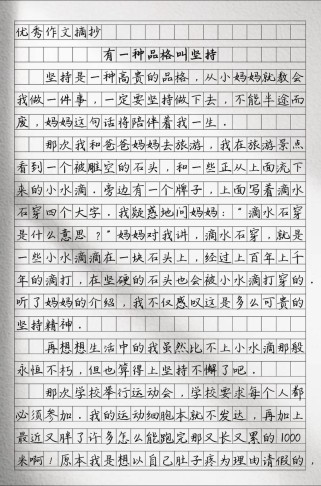 优秀作文摘抄
有一种品格叫坚持
坚持是一种高贵的品格，从小妈妈就教会
我做一件事，一定要坚持做下去，不能半途而
废，妈妈这句话将陪伴着我一生．
那次我和爸爸妈妈去旅游，我在旅游景点
看到一个被雕空的石头，和一些正从上面流下
来的小水滴．旁边有一个牌子，上面写着滴水
石穿四个大字．我疑惑地问妈妈："滴水石穿
是什么意思？"妈妈对我讲，滴水石穿，就是
一些小水滴滴在一块石头上，经过上百年上千
年的滴打，在坚硬的石头也会被小水滴打穿的．
听了妈妈的介绍，我不仅感叹这是多么可贵的
坚持精神．
再想想生活中的我虽然比不上小水滴那般
永恒不朽，但也算得上坚持不懈了吧．
那次学校举行运动会，学校要求每个人都
必须参加．我的运动细胞本就不发达，再加上
最近又胖了许多怎么能跑完那又长又累的1000
米啊！原本我是想以自己肚子疼为理由请假的，